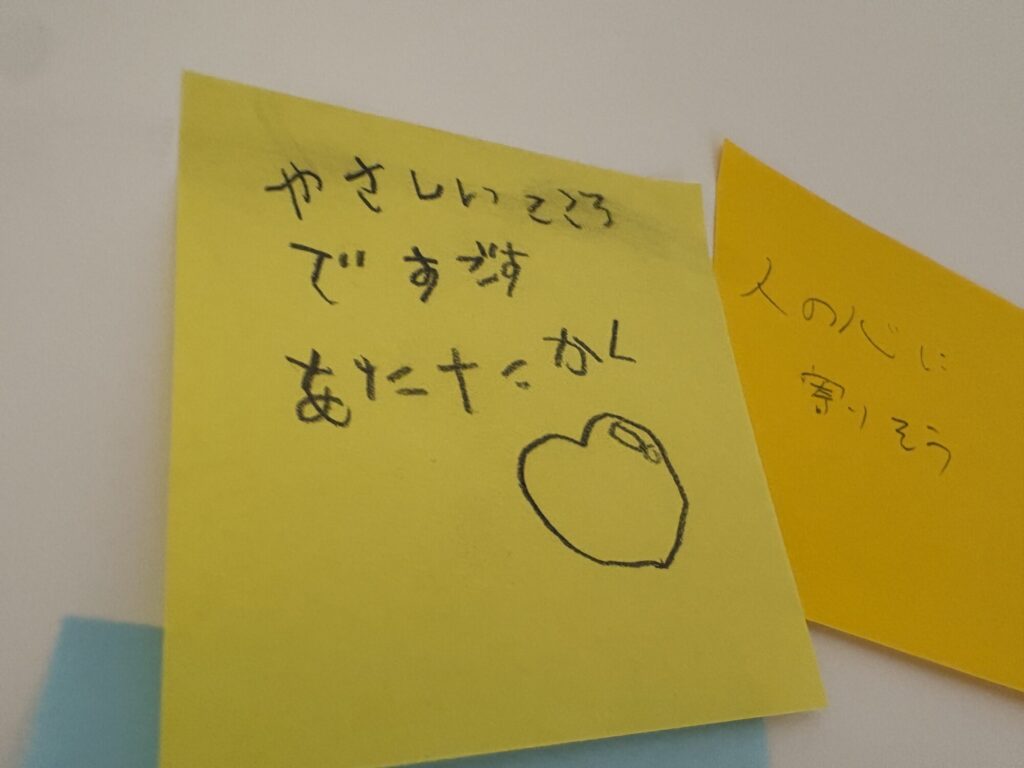 やさしいこころ
ですです
あたたかく
人の心に
寄りそう